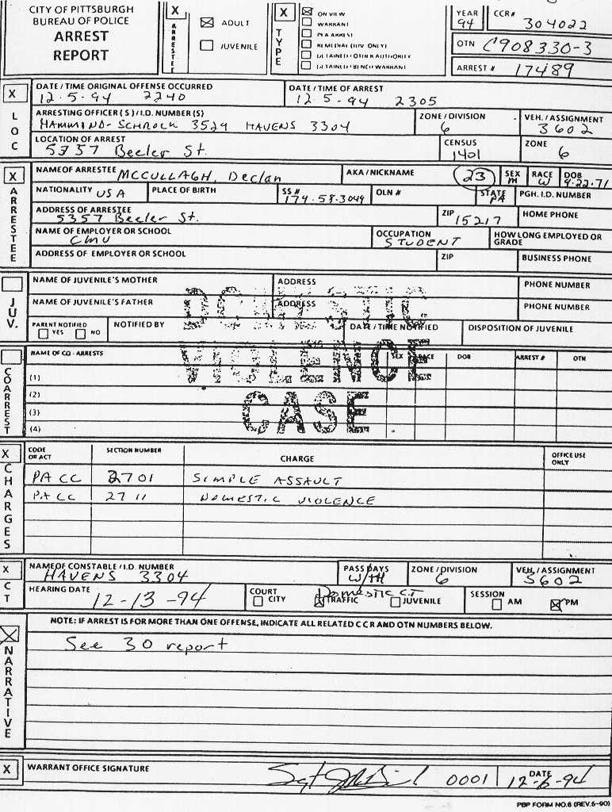 CITY OF PITTSBURGH
BUREAU OF POLICE
ARREST
REPORT
X
ARRESTEE
ADULT
JUVENILE
X
TYPE
ON VIEW
WARRANT
PIA ARREST
REMEDIAL (JUV ONLY)
DETAINED/OTHER AUTHORITY
DETAINED/BENCH WARRANT
YEAR
94
CCR#
304022
OTN C908330-3
ARREST # 17489
X
LOC
DATE / TIME ORIGINAL OFFENSE OCCURRED
12-5-94 2240
DATE / TIME OF ARREST
12-5-94 2305
ARRESTING OFFICER (S) / I.D. NUMBER (S)
HAMMIND-SCHROCK 3529 HAVENS 3304
ZONE / DIVISION
6
VEH. / ASSIGNMENT
3602
LOCATION OF ARREST
5357 Beeler St.
CENSUS
1401
ZONE
6
X
ARRESTEE
NAME OF ARRESTEE
MCCULLAGH, Declan
AKA / NICKNAME
23
SEX
M
RACE
W
DOB
9-22-71
NATIONALITY USA
PLACE OF BIRTH
SS#
174-58-3049
OLN #
STATE
PA
PGH. I.D. NUMBER
ADDRESS OF ARRESTEE
5357 Beeler St.
ZIP 15217
HOME PHONE
NAME OF EMPLOYER OR SCHOOL
CMU
OCCUPATION
STUDENT
HOW LONG EMPLOYED OR
GRADE
ADDRESS OF EMPLOYER OR SCHOOL
ZIP
BUSINESS PHONE
JUV.
NAME OF JUVENILE'S MOTHER
ADDRESS
PHONE NUMBER
NAME OF JUVENILE'S FATHER
ADDRESS
PHONE NUMBER
PARENT NOTIFIED
YES
NO
NOTIFIED BY
DATE / TIME NOTIFIED
DISPOSITION OF JUVENILE
DOMESTIC
VIOLENCE
CASE
COARREST
NAME OF CO-ARRESTS
SEX
RACE
DOB
ARREST #
OTN
(1)
(2)
(3)
(4)
X
CHARGES
CODE
OR ACT
SECTION NUMBER
CHARGE
OFFICE USE
ONLY
PA CC 2701 SIMPLE ASSAULT
PA CC 2711 DOMESTIC VIOLENCE
X
CT
NAME OF CONSTABLE / I.D. NUMBER
HAVENS 3304
PASS DAYS
W/TH
ZONE / DIVISION
6
VEH. / ASSIGNMENT
3602
HEARING DATE
12-13-94
COURT
CITY
TRAFFIC
JUVENILE
Domestic CT
SESSION
AM
PM
NARRATIVE
NOTE: IF ARREST IS FOR MORE THAN ONE OFFENSE, INDICATE ALL RELATED C C R AND OTN NUMBERS BELOW.
See 30 report
X
WARRANT OFFICE SIGNATURE
Sgt
0001
DATE
12-6-94
PBP FORM NO.6 (REV.6-90)